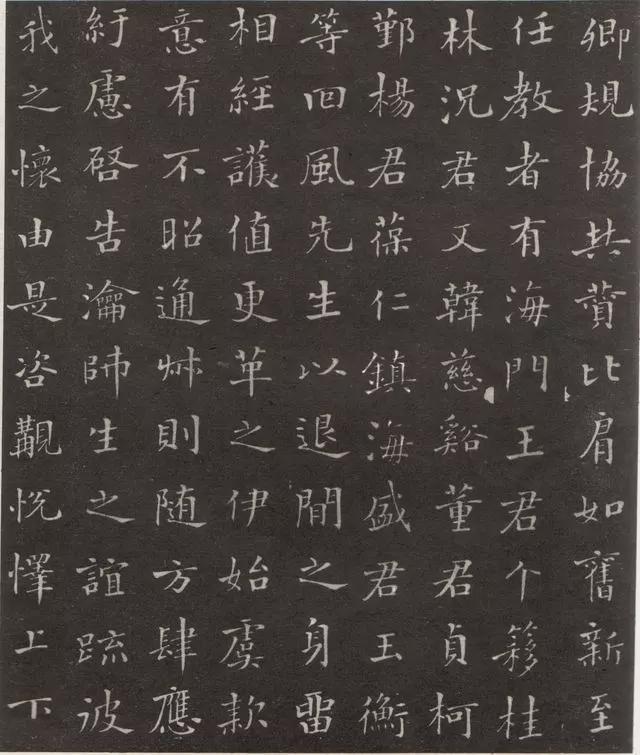 卿規協共贊比肩如舊新至
任教者有海門王君个簃桂
林況君又韓慈谿董君貞柯
鄞楊君葆仁鎮海盛君玉衡
等回風先生以退閒之身畱
相經護值更革之伊始虞款
意有不昭通則随方肆應
紆慮啓告瀹師生之誼疏彼
我之懷由是咨觀悅懌上下